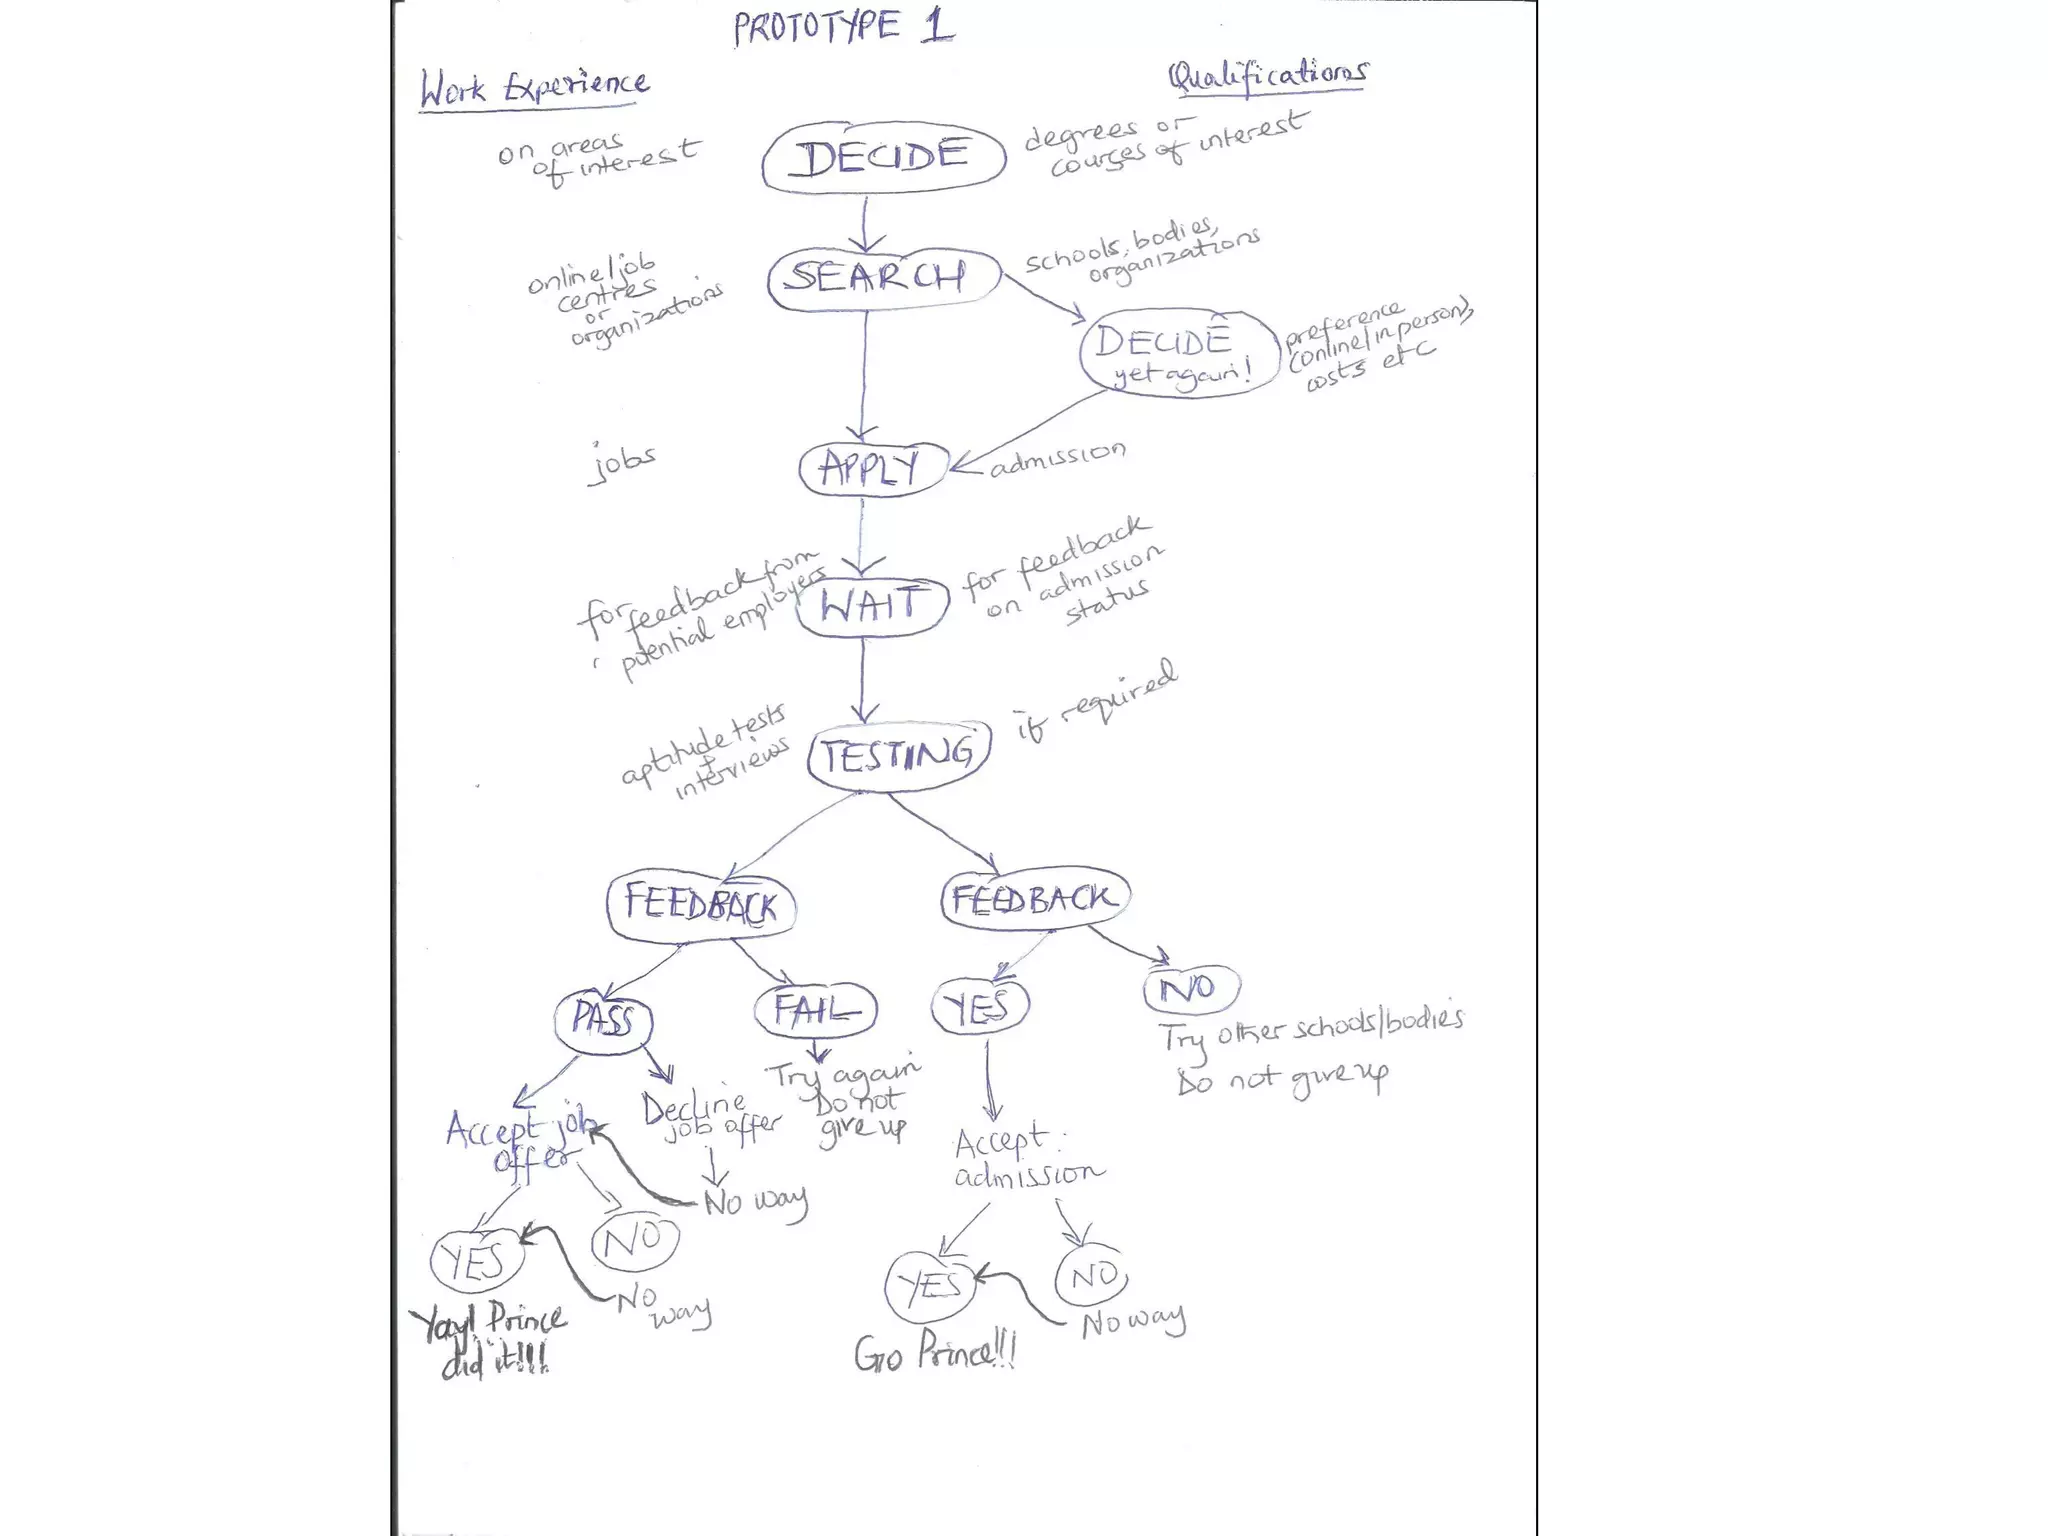 PROTOTYPE 1
Work Experience
Qualifications
on areas
of interest
DECIDE
degrees or
courses of interest
online/job
centres
or
organizations
SEARCH
schools, bodies,
organizations
DECIDE
yet again!
preference
(online/in person),
costs etc
jobs
APPLY
admission
for feedback from
potential employers
WAIT
for feedback
on admission
status
aptitude tests
+
interviews
TESTING
if required
FEEDBACK
FEEDBACK
PASS
FAIL
YES
NO
Try other schools/bodies
Do not give up
Try again
Do not
give up
Decline
job offer
No way
Accept job
offer
Accept:
admission
YES
NO
No
way
Yay! Prince
did it!!!
YES
NO
No way
Go Prince!!!